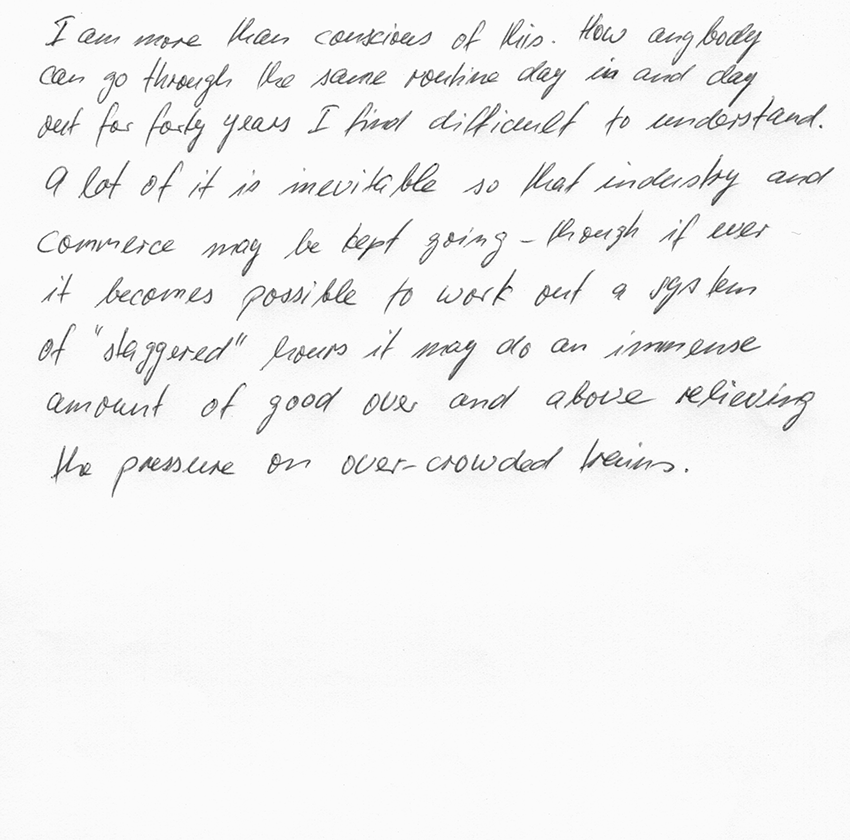 I am more than conscious of this. How anybody
can go through the same routine day in and day
out for forty years I find difficult to understand.
A lot of it is inevitable so that industry and
commerce may be kept going - though if ever
it becomes possible to work out a system
of "staggered" hours it may do an immense
amount of good over and above relieving
the pressure on over-crowded trains.